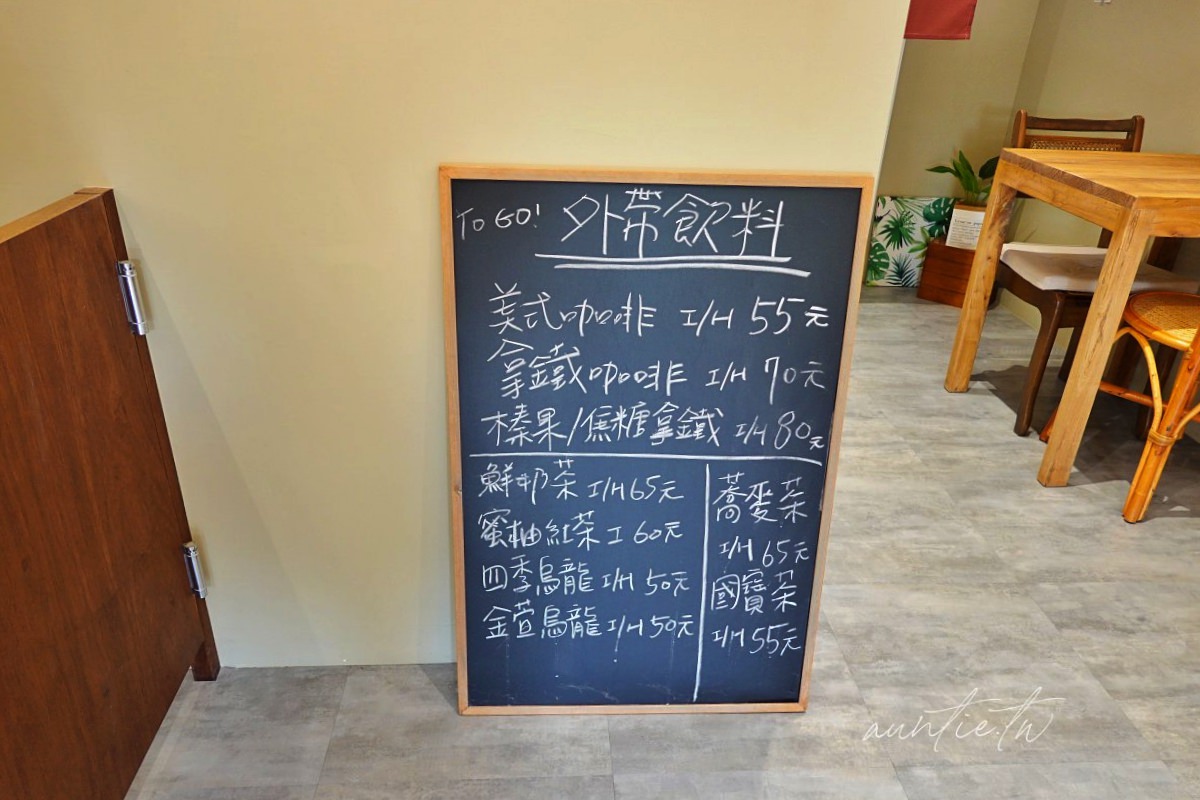 TO GO! 外帶飲料
美式咖啡 I/H 55元
拿鐵咖啡 I/H 70元
榛果/焦糖拿鐵 I/H 80元
鮮奶茶 I/H 65元
蜜柚紅茶 I 60元
四季烏龍 I/H 50元
金萱烏龍 I/H 50元
蕎麥茶
I/H 65元
國寶茶
I/H 55元
auntie.tw